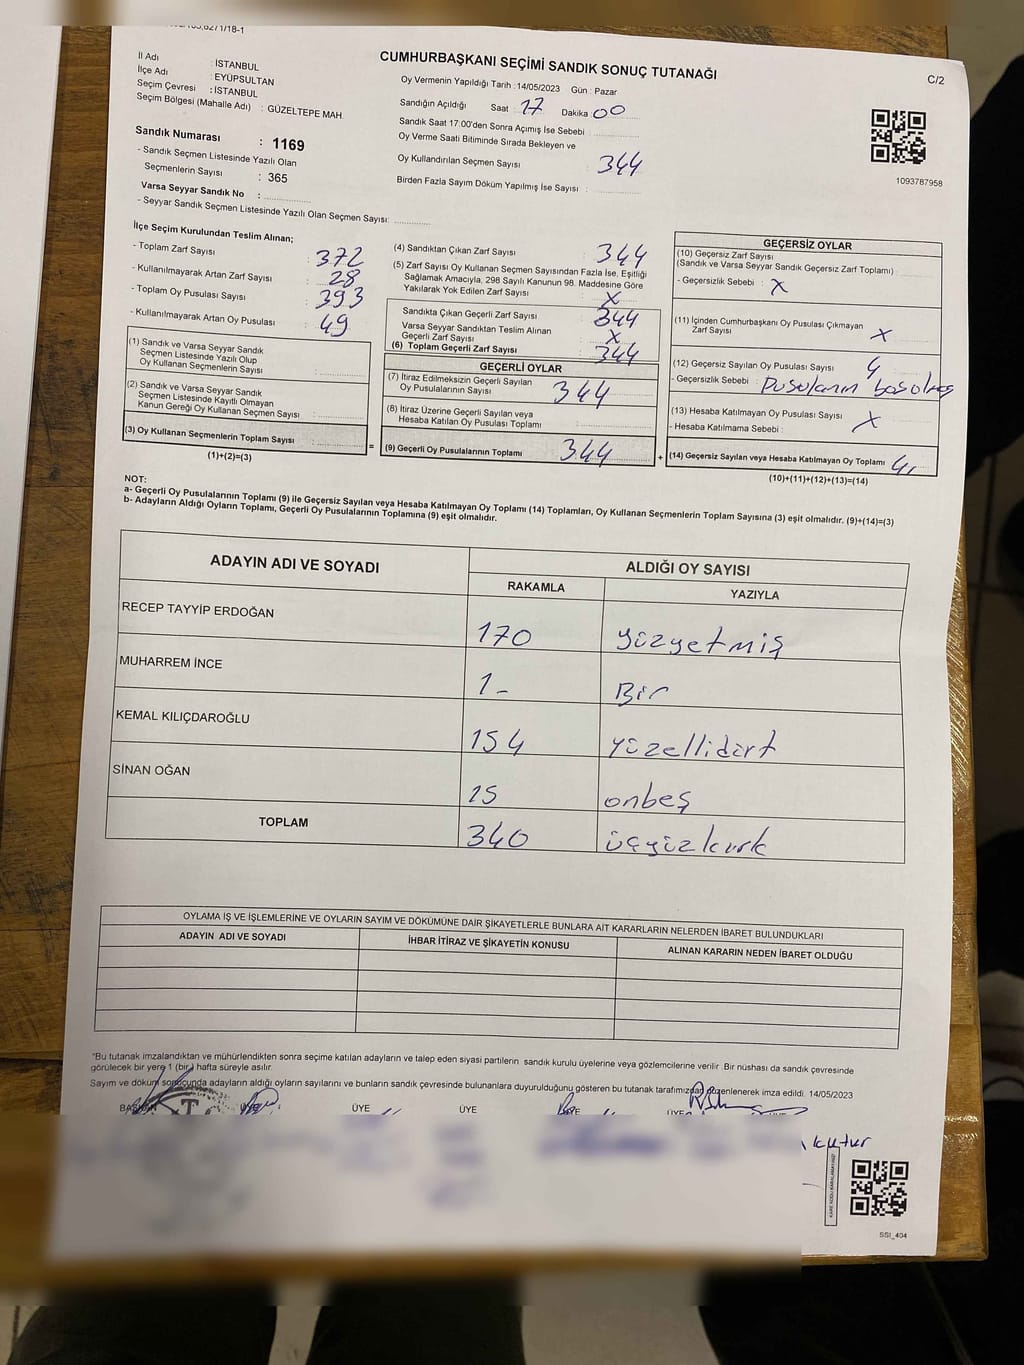 CUMHURBAŞKANI SEÇİMİ SANDIK SONUÇ TUTANAĞI
C/2
İl Adı : İSTANBUL
İlçe Adı : EYÜPSULTAN
Seçim Çevresi : İSTANBUL
Seçim Bölgesi (Mahalle Adı) : GÜZELTEPE MAH.
Sandık Numarası : 1169
- Sandık Seçmen Listesinde Yazılı Olan
Seçmenlerin Sayısı : 365
Varsa Seyyar Sandık No :
- Seyyar Sandık Seçmen Listesinde Yazılı Olan Seçmen Sayısı:
Oy Vermenin Yapıldığı Tarih : 14/05/2023 Gün : Pazar
Sandığın Açıldığı Saat : 17 Dakika : 00
Sandık Saat 17:00'den Sonra Açımış İse Sebebi :
Oy Verme Saati Bitiminde Sırada Bekleyen ve
Oy Kullandırılan Seçmen Sayısı : 344
Birden Fazla Sayım Döküm Yapılmış İse Sayısı :
1093787958
İlçe Seçim Kurulundan Teslim Alınan;
- Toplam Zarf Sayısı : 372
- Kullanılmayarak Artan Zarf Sayısı : 28
- Toplam Oy Pusulası Sayısı : 393
- Kullanılmayarak Artan Oy Pusulası : 49
(1) Sandık ve Varsa Seyyar Sandık
Seçmen Listesinde Yazılı Olup
Oy Kullanan Seçmenlerin Sayısı :
(2) Sandık ve Varsa Seyyar Sandık
Seçmen Listesinde Kayıtlı Olmayan
Kanun Gereği Oy Kullanan Seçmen Sayısı :
(3) Oy Kullanan Seçmenlerin Toplam Sayısı :
(1)+(2)=(3)
(4) Sandıktan Çıkan Zarf Sayısı : 344
(5) Zarf Sayısı Oy Kullanan Seçmen Sayısından Fazla İse, Eşitliği
Sağlamak Amacıyla, 298 Sayılı Kanunun 98. Maddesine Göre
Yakılarak Yok Edilen Zarf Sayısı : X
Sandıkta Çıkan Geçerli Zarf Sayısı : 344
Varsa Seyyar Sandıktan Teslim Alınan
Geçerli Zarf Sayısı : X
(6) Toplam Geçerli Zarf Sayısı : 344
GEÇERLİ OYLAR
(7) İtiraz Edilmeksizin Geçerli Sayılan
Oy Pusulalarının Sayısı : 344
(8) İtiraz Üzerine Geçerli Sayılan veya
Hesaba Katılan Oy Pusulası Toplamı :
= (9) Geçerli Oy Pusulalarının Toplamı : 344
GEÇERSİZ OYLAR
(10) Geçersiz Zarf Sayısı
(Sandık ve Varsa Seyyar Sandık Geçersiz Zarf Toplamı) :
- Geçersizlik Sebebi : X
(11) İçinden Cumhurbaşkanı Oy Pusulası Çıkmayan
Zarf Sayısı : X
(12) Geçersiz Sayılan Oy Pusulası Sayısı : 4
- Geçersizlik Sebebi : pusuların
(13) Hesaba Katılmayan Oy Pusulası Sayısı : X
- Hesaba Katılmama Sebebi :
+ (14) Geçersiz Sayılan veya Hesaba Katılmayan Oy Toplamı : 4
(10)+(11)+(12)+(13)=(14)
NOT:
a- Geçerli Oy Pusulalarının Toplamı (9) ile Geçersiz Sayılan veya Hesaba Katılmayan Oy Toplamı (14) Toplamları, Oy Kullanan Seçmenlerin Toplam Sayısına (3) eşit olmalıdır. (9)+(14)=(3)
b- Adayların Aldığı Oyların Toplamı, Geçerli Oy Pusulalarının Toplamına (9) eşit olmalıdır.
ADAYIN ADI VE SOYADI ALDIĞI OY SAYISI
RAKAMLA YAZIYLA
RECEP TAYYİP ERDOĞAN 170 yüzyetmiş
MUHARREM İNCE 1- Bir
KEMAL KILIÇDAROĞLU 154 yüzellidört
SİNAN OĞAN 15 onbeş
TOPLAM 340 üçyüzkırk
OYLAMA İŞ VE İŞLEMLERİNE VE OYLARIN SAYIM VE DÖKÜMÜNE DAİR ŞİKAYETLERLE BUNLARA AİT KARARLARIN NELERDEN İBARET BULUNDUKLARI
ADAYIN ADI VE SOYADI İHBAR İTİRAZ VE ŞİKAYETİN KONUSU ALINAN KARARIN NEDEN İBARET OLDUĞU
"Bu tutanak imzalandıktan ve mühürlendikten sonra seçime katılan adayların ve talep eden siyasi partilerin sandık kurulu üyelerine veya gözlemcilerine verilir. Bir nüshası da sandık çevresinde
görülecek bir yere 1 (bir) hafta süreyle asılır.
Sayım ve döküm sonucunda adayların aldığı oyların sayılarını ve bunların sandık çevresinde bulunanlara duyurulduğunu gösteren bu tutanak tarafımızdan düzenlenerek imza edildi. 14/05/2023
BAŞKAN ÜYE ÜYE ÜYE ÜYE
SSI_404